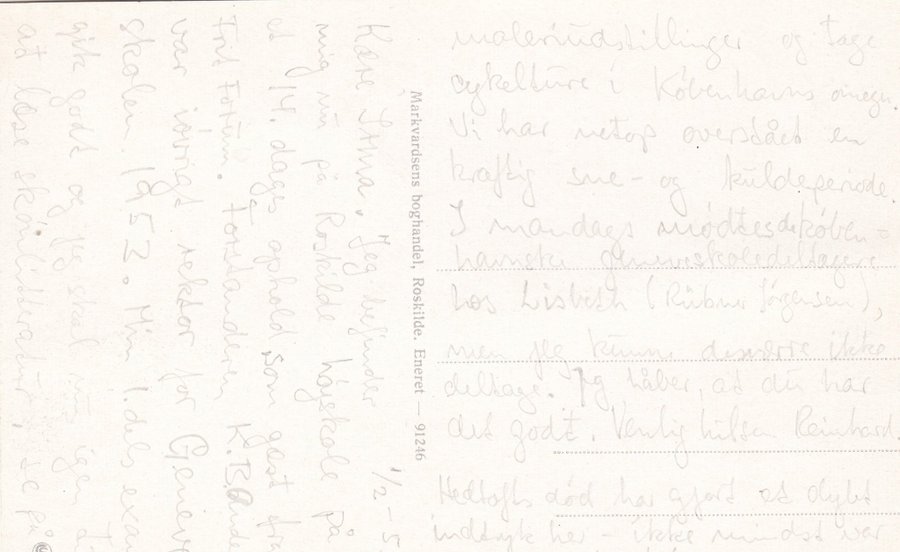 1/2 - 5
Kære Irma. Jeg befinder
mig nu på Roskilde højskole på
et 14. dages ophold som gæst fra
Frit Forum. Forstanderen K.B. Ande
var iøvrigt rektor for Geneve
skolen 1952. Min 1. dels exam
gik godt og jeg skal nu igen ti
at læse skønlitteratur, se på
malerudstillinger og tage
cykelture i Københavns omegn.
Vi har netop overstået en
kraftig sne- og kuldeperiode.
I mandags mødtes de køben-
havnske geneveskoledeltagere
hos Lisbeth (Rübner Jørgensen),
men jeg kunne desværre ikke
deltage. Jeg håber, at du har
det godt. Venlig hilsen Reinhard.
Hedtofts død har gjort et dybt
indtryk her - ikke mindst var
Markvardsens boghandel, Roskilde. Eneret — 91246